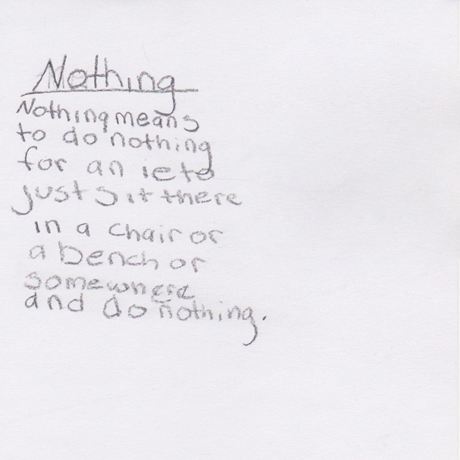 Nothing
Nothing means
to do nothing
for an ieto
just sit there
in a chair or
a bench or
somewhere
and do nothing.